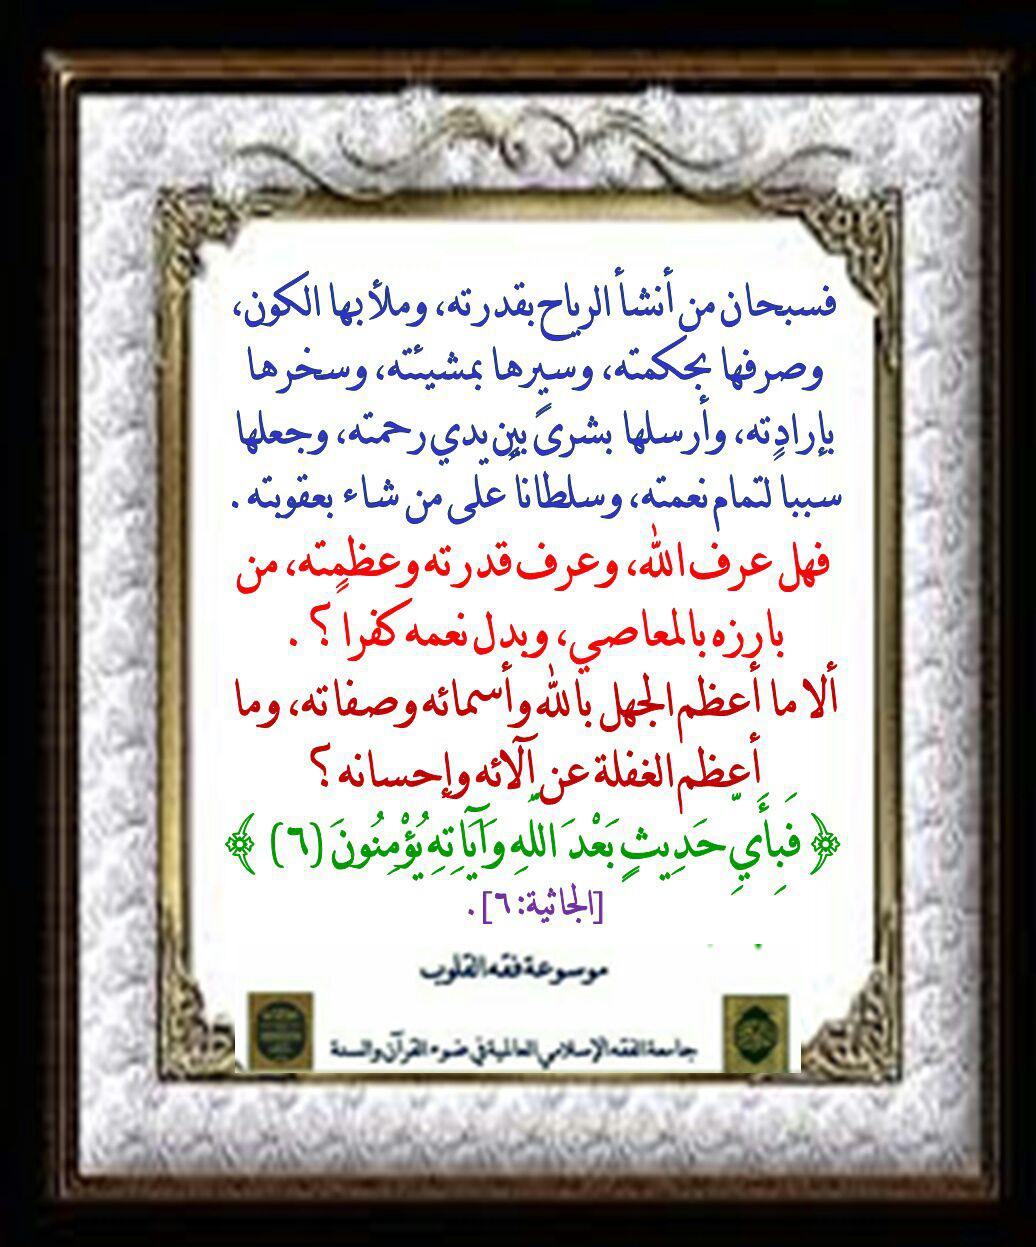 فسبحان من أنشأ الرياح بقدرته، وملأ بها الكون،
وصرفها بحكمته، وسيرها بمشيئته، وسخرها
بإرادته، وأرسلها بشرىً بين يدي رحمته، وجعلها
سببا لتمام نعمته، وسلطاناً على من شاء بعقوبته .
فهل عرف الله، وعرف قدرته وعظمته، من
بارزه بالمعاصي، وبدل نعمه كفراً ؟ .
ألا ما أعظم الجهل بالله وأسمائه وصفاته، وما
أعظم الغفلة عن آلائه وإحسانه ؟
﴿ فَبِأَيِّ حَدِيثٍ بَعْدَ اللَّهِ وَآيَاتِهِ يُؤْمِنُونَ (٦) ﴾
[الجاثية: ٦] .
موسوعة فقه القلوب
جامعة الفقه الإسلامي العالمية في ضوء القرآن والسنة